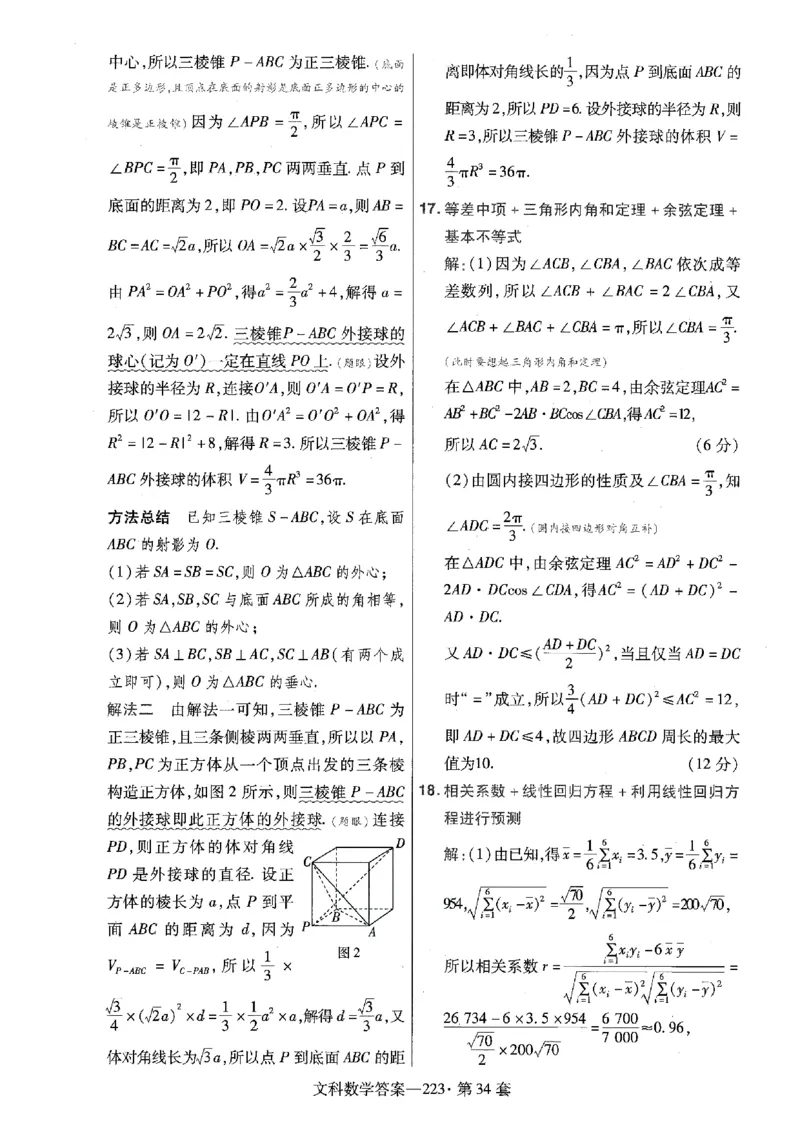 中心,所以三棱锥 P－ABC 为正三棱锥.(底面
是正多边形,且顶点在底面的射影是底面正多边形的中心的
棱锥是正棱锥)因为 ∠APB = π/2,所以 ∠APC =
∠BPC = π/2,即 PA,PB,PC 两两垂直. 点 P 到
底面的距离为 2,即 PO = 2. 设PA = a,则 AB =
BC = AC = √2a,所以 OA = √2a × √3/2 × 2/3 = √6/3 a.
由 PA² = OA² + PO²,得a² = 2/3 a² + 4,解得 a =
2√3,则 OA = 2√2. 三棱锥P－ABC 外接球的
球心(记为 O′)一定在直线 PO 上.(题眼)设外
接球的半径为 R,连接O′A,则 O′A = O′P = R,
所以 O′O = |2 － R|. 由O′A² = O′O² + OA²,得
R² = |2 － R|² + 8,解得 R = 3. 所以三棱锥 P－
ABC 外接球的体积 V = 4/3 πR³ = 36π.
方法总结 已知三棱锥 S－ABC,设 S 在底面
ABC 的射影为 O.
(1)若 SA = SB = SC,则 O 为△ABC 的外心;
(2)若 SA,SB,SC 与底面 ABC 所成的角相等,
则 O 为△ABC 的外心;
(3)若 SA⊥BC,SB⊥AC,SC⊥AB(有两个成
立即可),则 O 为△ABC 的垂心.
解法二 由解法一可知,三棱锥 P－ABC 为
正三棱锥,且三条侧棱两两垂直,所以以 PA,
PB,PC 为正方体从一个顶点出发的三条棱
构造正方体,如图 2 所示,则三棱锥 P－ABC
的外接球即此正方体的外接球.(题眼)连接
PD,则正方体的体对角线
PD 是外接球的直径. 设正
方体的棱长为 a,点 P 到平
面 ABC 的距离为 d,因为
V_{P－ABC} = V_{C－PAB},所以 1/3 ×
D
C
B
P
A
图2
√3/4 × (√2a)² × d = 1/3 × 1/2 a² × a,解得 d = √3/3 a,又
体对角线长为√3a,所以点 P 到底面 ABC 的距
离即体对角线长的1/3,因为点 P 到底面 ABC 的
距离为 2,所以 PD = 6. 设外接球的半径为 R,则
R = 3,所以三棱锥 P－ABC 外接球的体积 V =
4/3 πR³ = 36π.
17. 等差中项 + 三角形内角和定理 + 余弦定理 +
基本不等式
解:(1)因为 ∠ACB,∠CBA,∠BAC 依次成等
差数列,所以 ∠ACB + ∠BAC = 2∠CBA,又
∠ACB + ∠BAC + ∠CBA = π,所以∠CBA = π/3.
(此时要想起三角形内角和定理)
在△ABC 中,AB = 2,BC = 4,由余弦定理AC² =
AB² + BC² － 2AB·BCcos∠CBA,得AC² = 12,
所以 AC = 2√3. (6 分)
(2)由圆内接四边形的性质及∠CBA = π/3,知
∠ADC = 2π/3.(圆内接四边形对角互补)
在△ADC 中,由余弦定理 AC² = AD² + DC² －
2AD·DCcos∠CDA,得AC² = (AD + DC)² －
AD·DC.
又 AD·DC ≤ ((AD + DC)/2)²,当且仅当 AD = DC
时“ = ”成立,所以 3/4 (AD + DC)² ≤ AC² = 12,
即 AD + DC ≤ 4,故四边形 ABCD 周长的最大
值为10. (12 分)
18. 相关系数 + 线性回归方程 + 利用线性回归方
程进行预测
解:(1)由已知,得 x̄ = 1/6 ∑_{i=1}^{6} x_i = 3.5, ȳ = 1/6 ∑_{i=1}^{6} y_i =
954, √(∑_{i=1}^{6} (x_i － x̄)²) = √70/2, √(∑_{i=1}^{6} (y_i － ȳ)²) = 200√70,
所以相关系数 r = (∑_{i=1}^{6} x_i y_i － 6x̄ȳ) / (√(∑_{i=1}^{6} (x_i － x̄)²) √(∑_{i=1}^{6} (y_i － ȳ)²)) =
(26 734 － 6 × 3.5 × 954) / (√70/2 × 200√70) = 6 700/7 000 ≈ 0.96,
文科数学答案—223·第 34 套